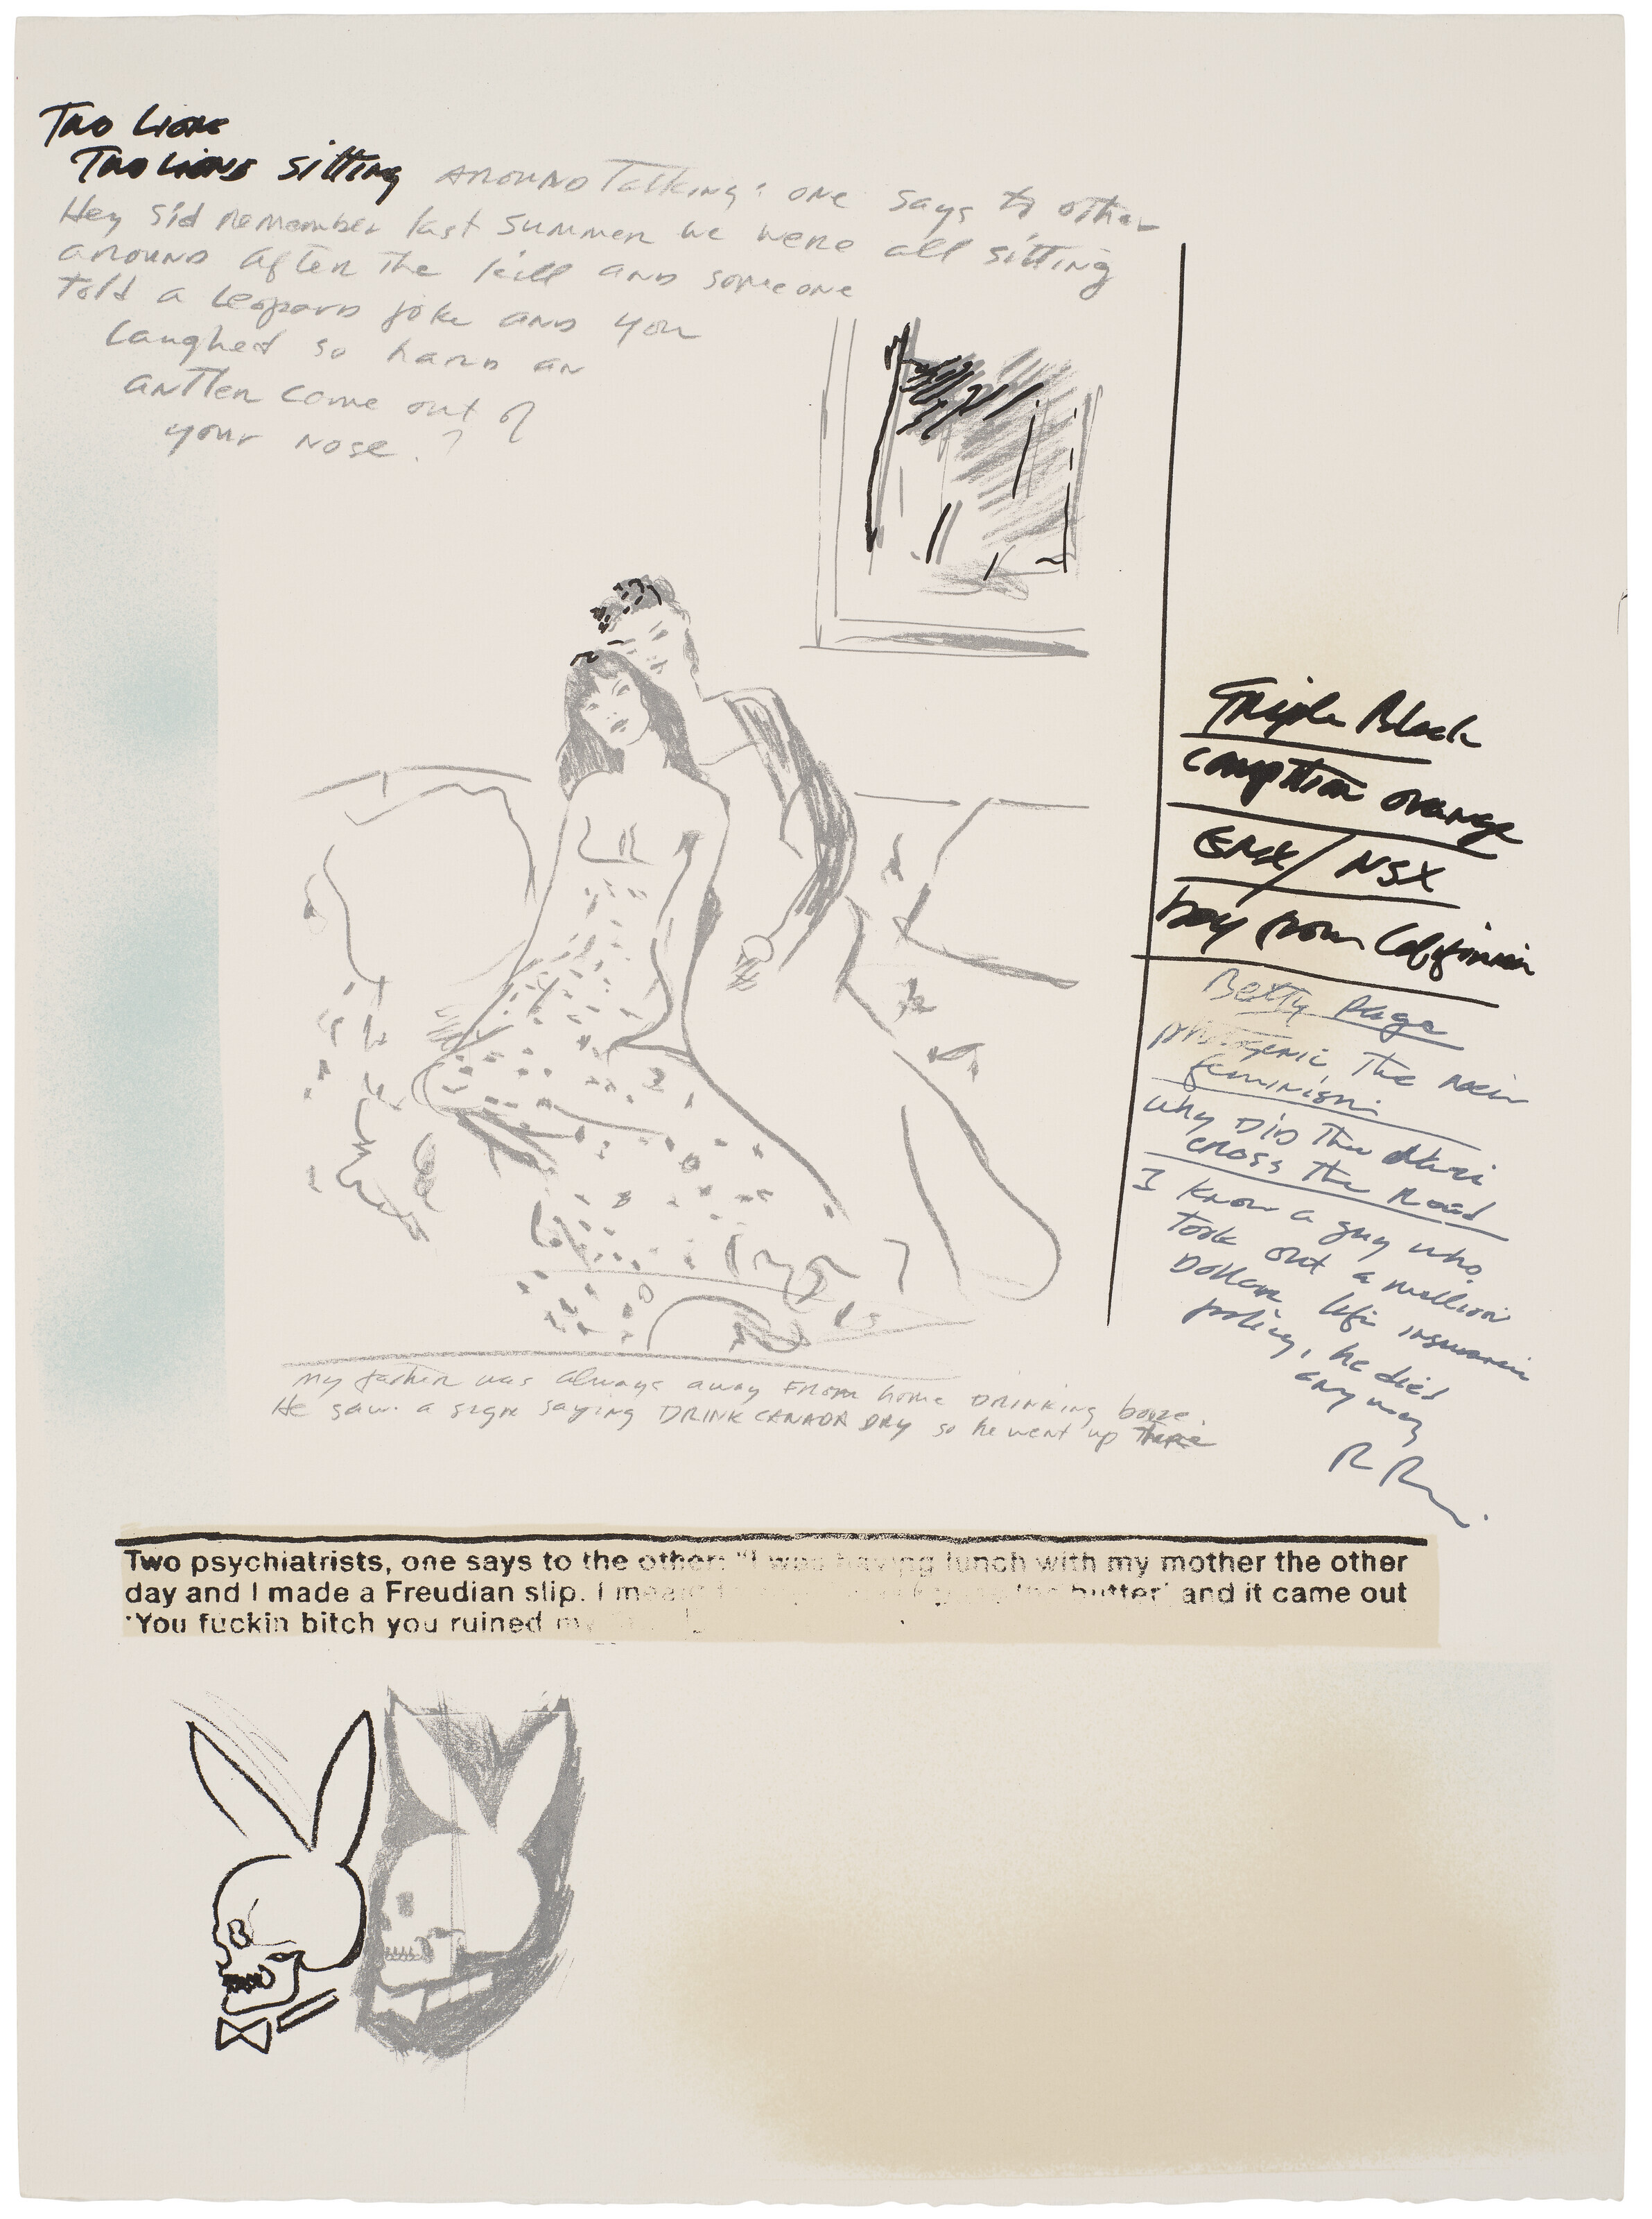 Two Lions
Two Lions sitting around Talking: one says to other
Hey Sid remember last summer we were all sitting
around after the kill and someone
told a leopard joke and you
laughed so hard an
antler came out of
your nose.?
Triple Black
orange
GNX/NSX
boy from California
Betty Page
photogenic, The new
feminism
why DiD The
cross The Road
I know a guy who
took out a million
Dollar life insurance
policy, he died
anyway
my father was always away From home DRINKING booze.
He saw a sign saying DRINK CANADA DRY so he went up there
Two psychiatrists, one says to the other: "I was having lunch with my mother the other
day and I made a Freudian slip. I mean the butter' and it came out
'You fuckin bitch you ruined my